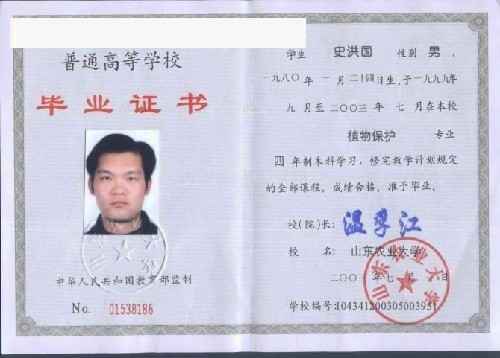 普通高等学校
毕业证书
中华人民共和国教育部监制
No. 01538186
学生 史洪国 性别 男，
一九八〇年一月二十四日生，于一九九九年
九月至二〇〇三年七月在本校
植物保护 专业
四年制本科学习，修完教学计划规定
的全部课程，成绩合格，准予毕业。
校(院)长： 温孚江
校 名 山东农业大学
二〇〇 年七月 日
学校编号：104341200305003951
山东农业大学